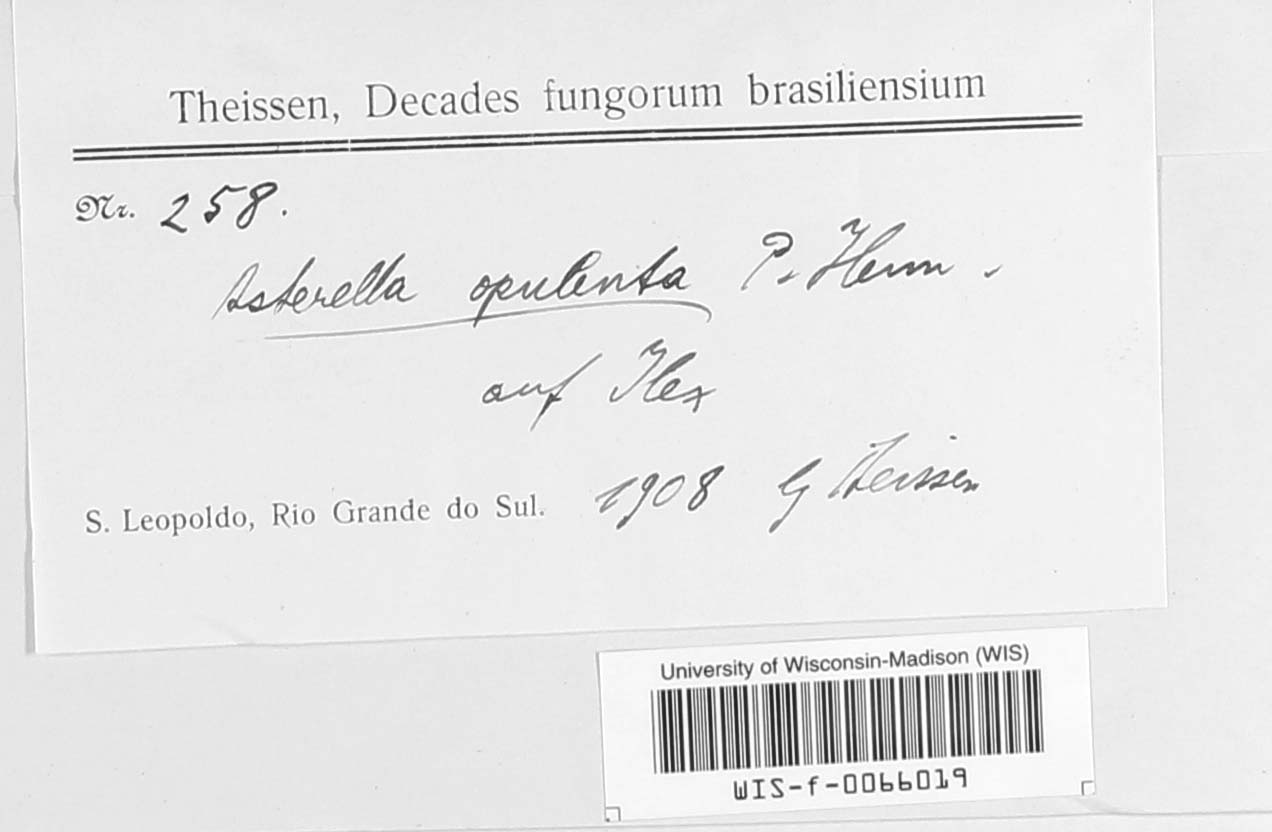 Theissen, Decades fungorum brasiliensium
Nr. 258.
Asterella opulenta P. Henn.
auf Ilex
S. Leopoldo, Rio Grande do Sul. 1908 G Theissen
University of Wisconsin-Madison (WIS)
WIS-f-0066019